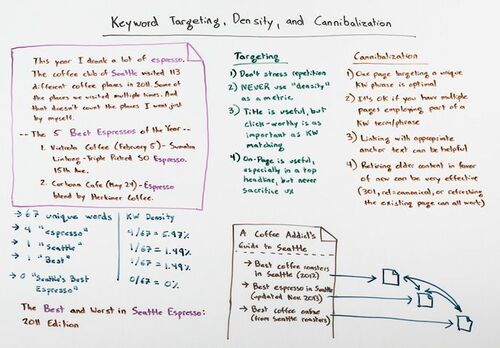 Keyword Targeting, Density, and Cannibalization
This year I drank a lot of espresso.
The coffee club of Seattle visited 113
different coffee places in 2011. Some of
the places we visited multiple times. And
that doesn't count the places I went just
by myself.
-- The 5 Best Espressos of the Year --
1. Victrola Coffee (February 5) - Sumatra
Lintong - Triple Picked SO Espresso.
15th Ave.
2. Cortona Cafe (May 29) - Espresso
blend by Herkimer Coffee.
→ 67 unique words
→ 4 "espresso"
→ 1 "Seattle"
→ 1 "Best"
→ 0 "Seattle's Best
Espresso"
KW Density
4/67 = 5.97%
1/67 = 1.49%
1/67 = 1.49%
0/67 = 0%
The Best and Worst in Seattle Espresso:
2011 Edition
Targeting
1) Don't stress repetition
2) NEVER use "density"
as a metric
3) Title is useful, but
click-worthy is as
important as KW
matching
4) On-Page is useful,
especially in a top
headline, but never
sacrifice UX
Cannibalization
1) One page targeting a unique
KW phrase is optimal
2) It's OK if you have multiple
pages employing part of a
KW term/phrase
3) Linking with appropriate
anchor text can be helpful
4) Retiring older content in favor
of new can be very effective
(301, rel=canonical, or refreshing
the existing page can all work)
A Coffee Addict's
Guide to Seattle
→ Best coffee roasters
in Seattle (2012)
→ Best espresso in Seattle
(updated Nov. 2013)
→ Best coffee online
(from Seattle roasters)